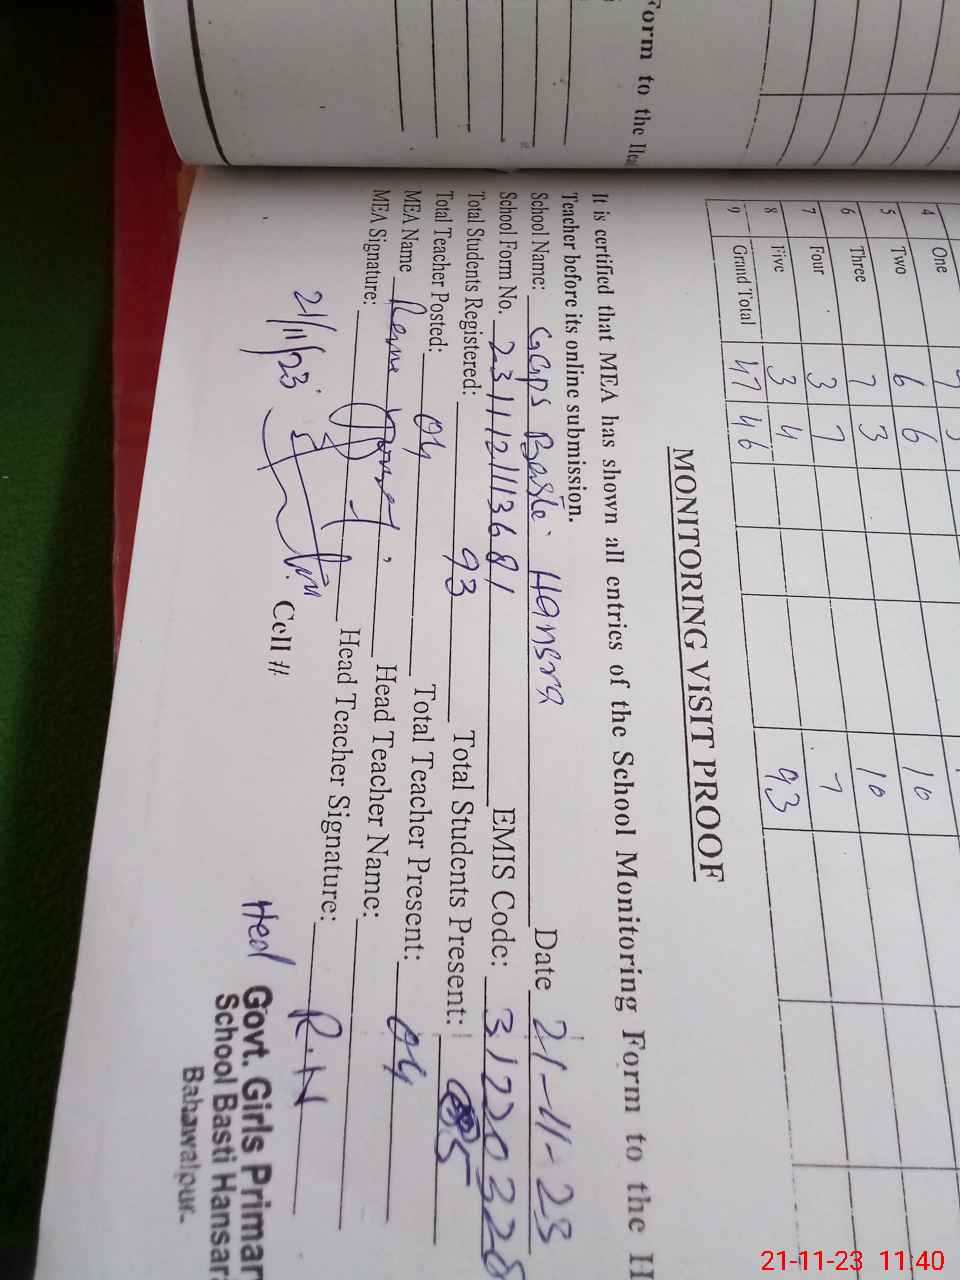 Form to the Hea
4 One 7
5 Two 6 6 10
6 Three 7 3 10
7 Four 3 7 7
8 Five 3 4 93
9 Grand Total 47 46
MONITORING VISIT PROOF
It is certified that MEA has shown all entries of the School Monitoring Form to the H
Teacher before its online submission.
School Name: GGPS Basti Hansra Date 21-11-23
School Form No. EMIS Code: 31220328
Total Students Registered: 93 Total Students Present: 85
Total Teacher Posted: 04 Total Teacher Present: 04
MEA Name Head Teacher Name:
MEA Signature: Head Teacher Signature: R.N
21/11/23 Cell #
Hed Govt. Girls Primar
School Basti Hansara
Bahawalpur.
21-11-23 11:40